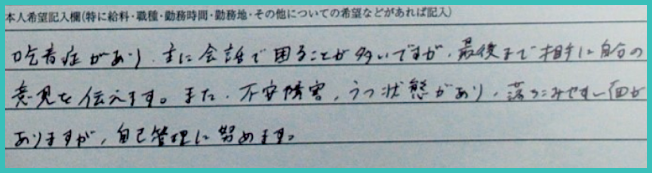 本人希望記入欄(特に給料・職種・勤務時間・勤務地・その他についての希望などがあれば記入)
吃音症があり、主に会話で困ることが多いですが、最後まで相手に自分の
意見を伝えます。また、不安障害、うつ状態があり、落ちこみやすい面が
ありますが、自己管理に努めます。